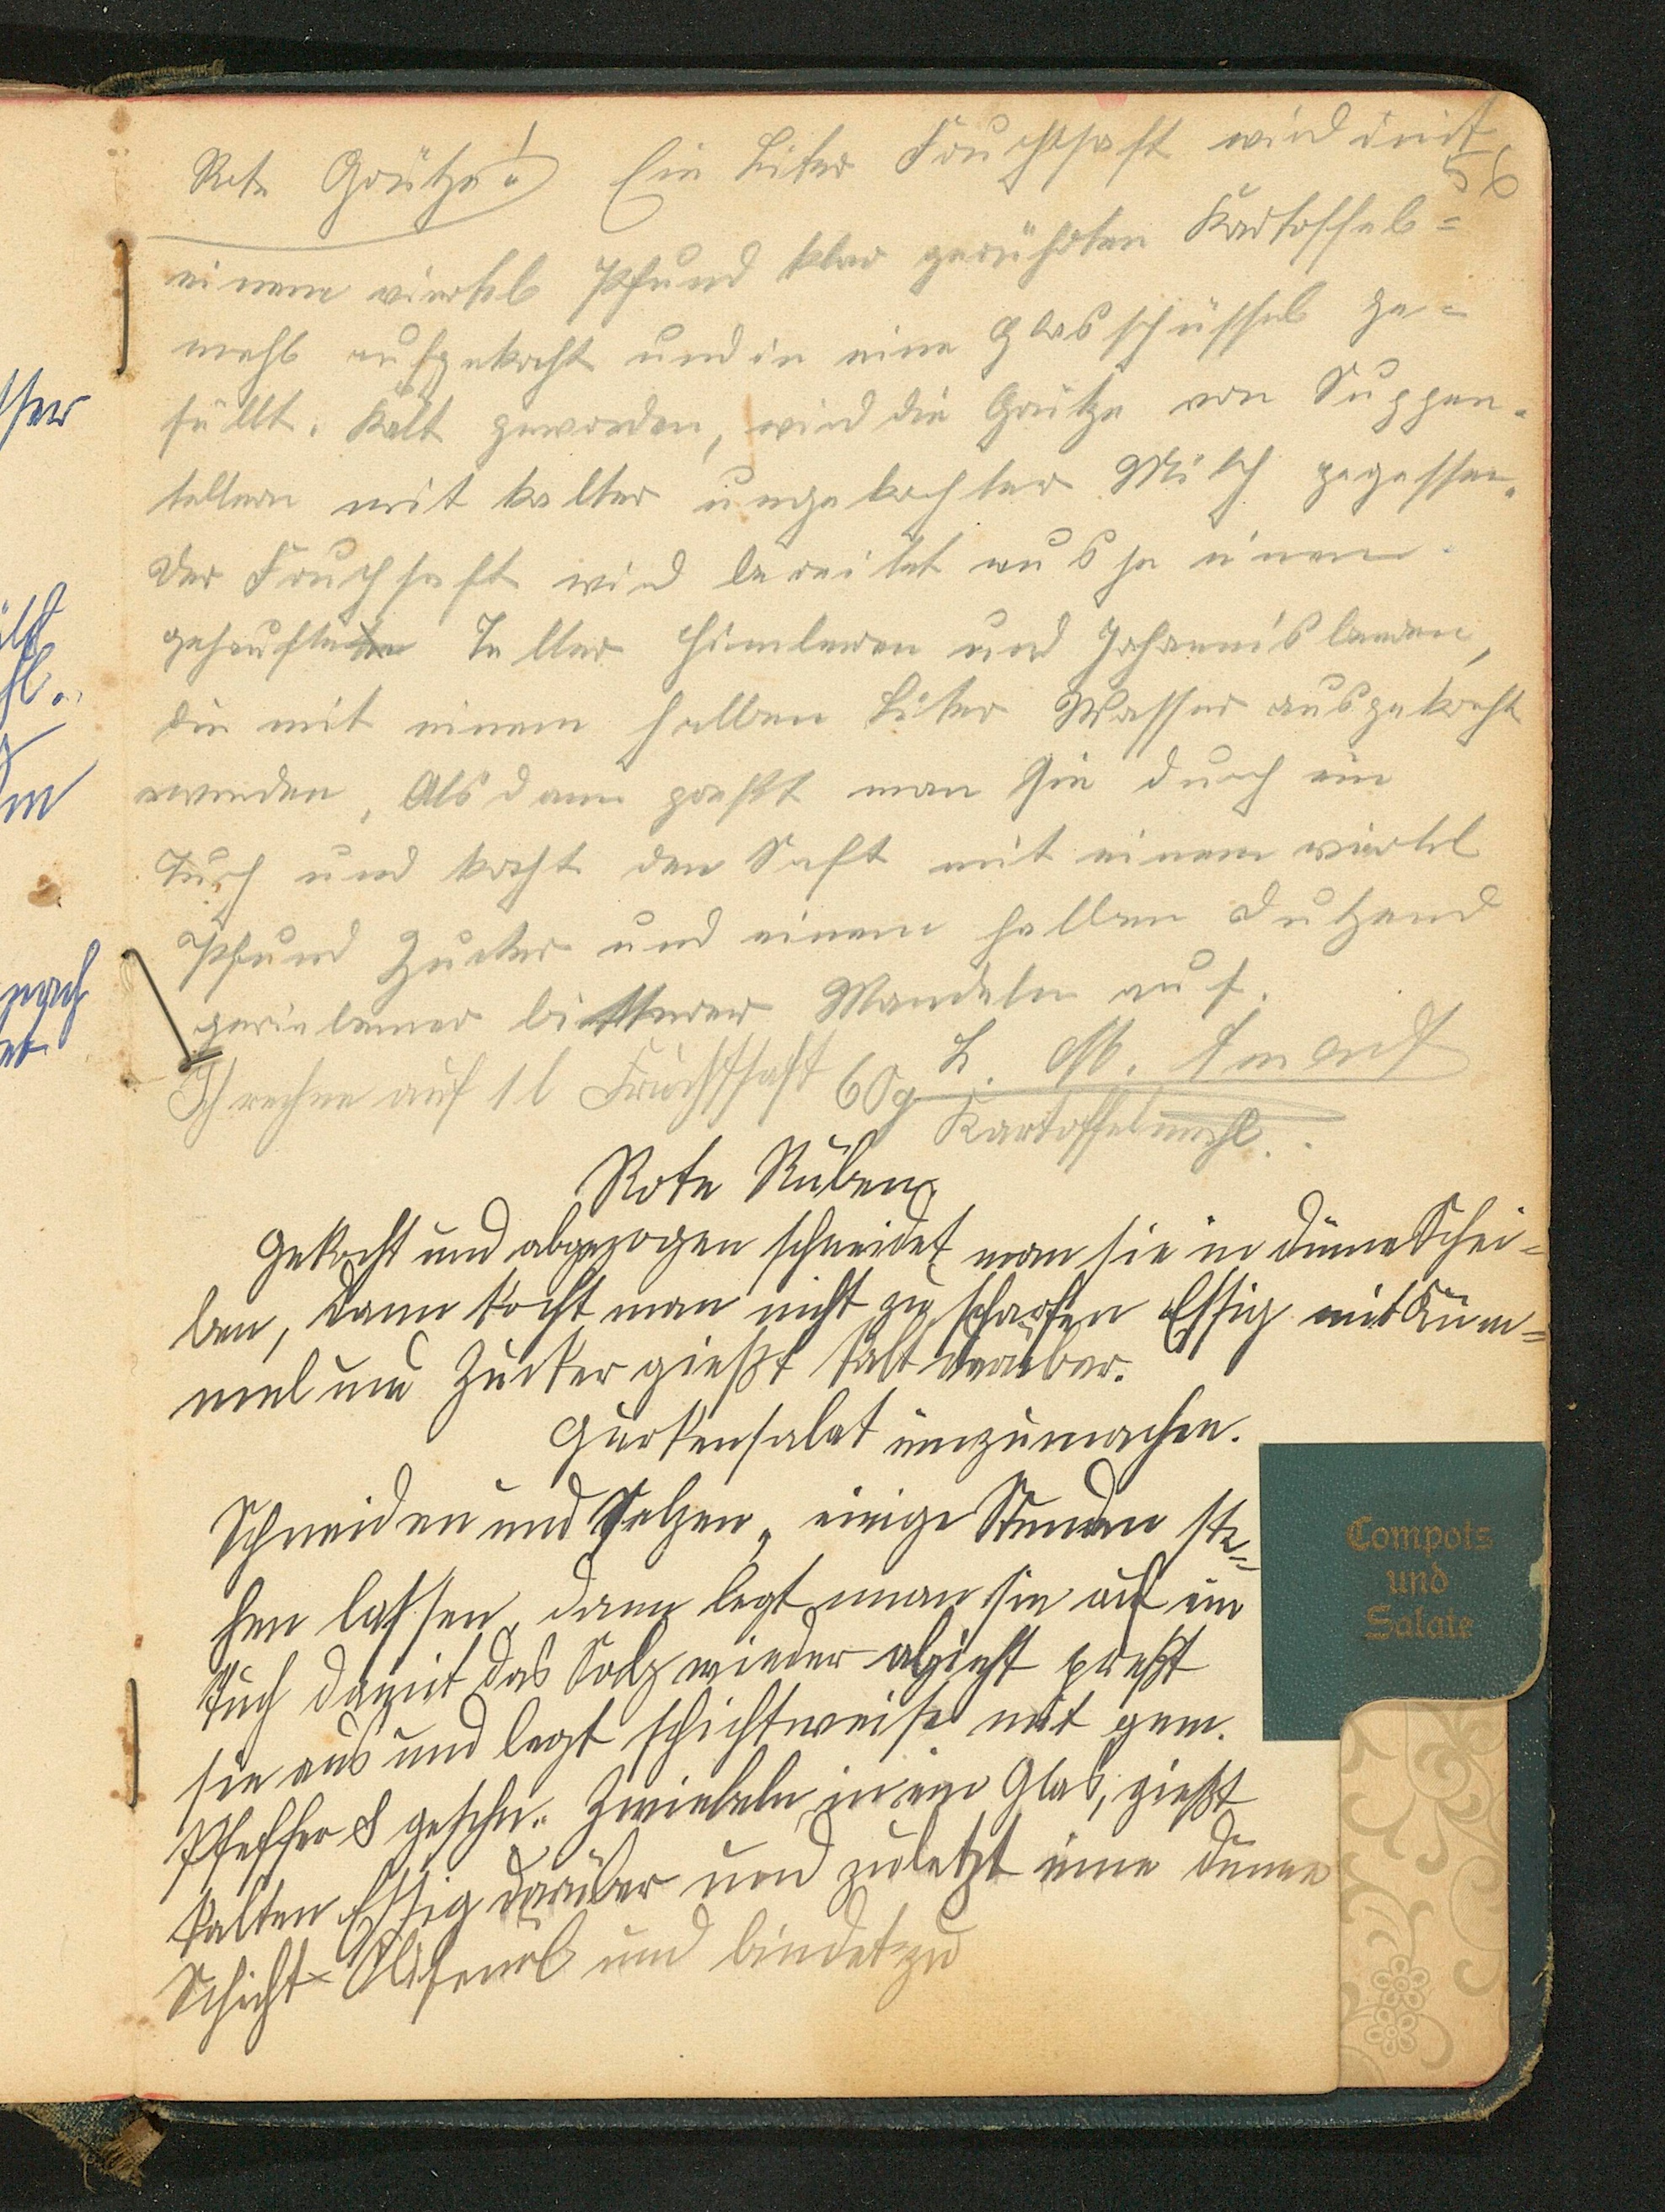 Rote Grütze! Ein Liter Fruchtsaft wird mit
56
einem viertel Pfund klar gerührten Kartoffel=
mehl aufgekocht und in eine Glasschüssel ge=
füllt. Kalt geworden, wird die Grütze von Suppen-
tellern mit kalter ungekochter Milch gegessen.
Der Fruchsaft wird bereitet aus je einem
gehäuften Teller Himbeeren und Johannisbeeren,
die mit einem halben Liter Wasser ausgekocht
werden, Alsdann preßt man sie durch ein
Tuch und kocht den Saft mit einem viertel
Pfund Zucker und einem halben Dutzend
geriebener bitterer Mandeln auf.
L. M.
Ich rechne auf 1 l Fruchtsaft 60 g
Kartoffelmehl.
Rote Rüben
Gekocht und abgezogen schneidet man sie in dünne Schei=
ben, dann kocht man nicht zu scharfen Essig mit Küm=
mel und Zucker gießt kalt darüber.
Gurkensalat einzumachen.
Schneiden und Salzen, einige Stunden ste=
hen lassen, dann legt man sie auf ein
Tuch damit das Salz wieder abzieht preßt
sie aus und legt schichtweise mit gem.
Pfeffer & geschn. Zwiebeln in ein Glas, gießt
kalten Essig darüber und zuletzt eine dünne
Schicht Olifenöl und bindet zu
Compots
und
Salate
sser
nach